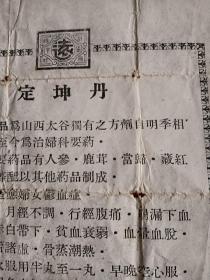 遠
定坤丹
品為山西太谷獨有之方創自明季相
至今為治婦科要葯
要葯品有人參·鹿茸·當歸·藏紅
配以其他葯品制成
應婦女鬱血症
月經不調·行經腹痛·崩漏下血
赤白帶下·貧血衰弱·血暈血脫·
諸虛·骨蒸潮熱·
次服用半丸至一丸·早晚空心服·